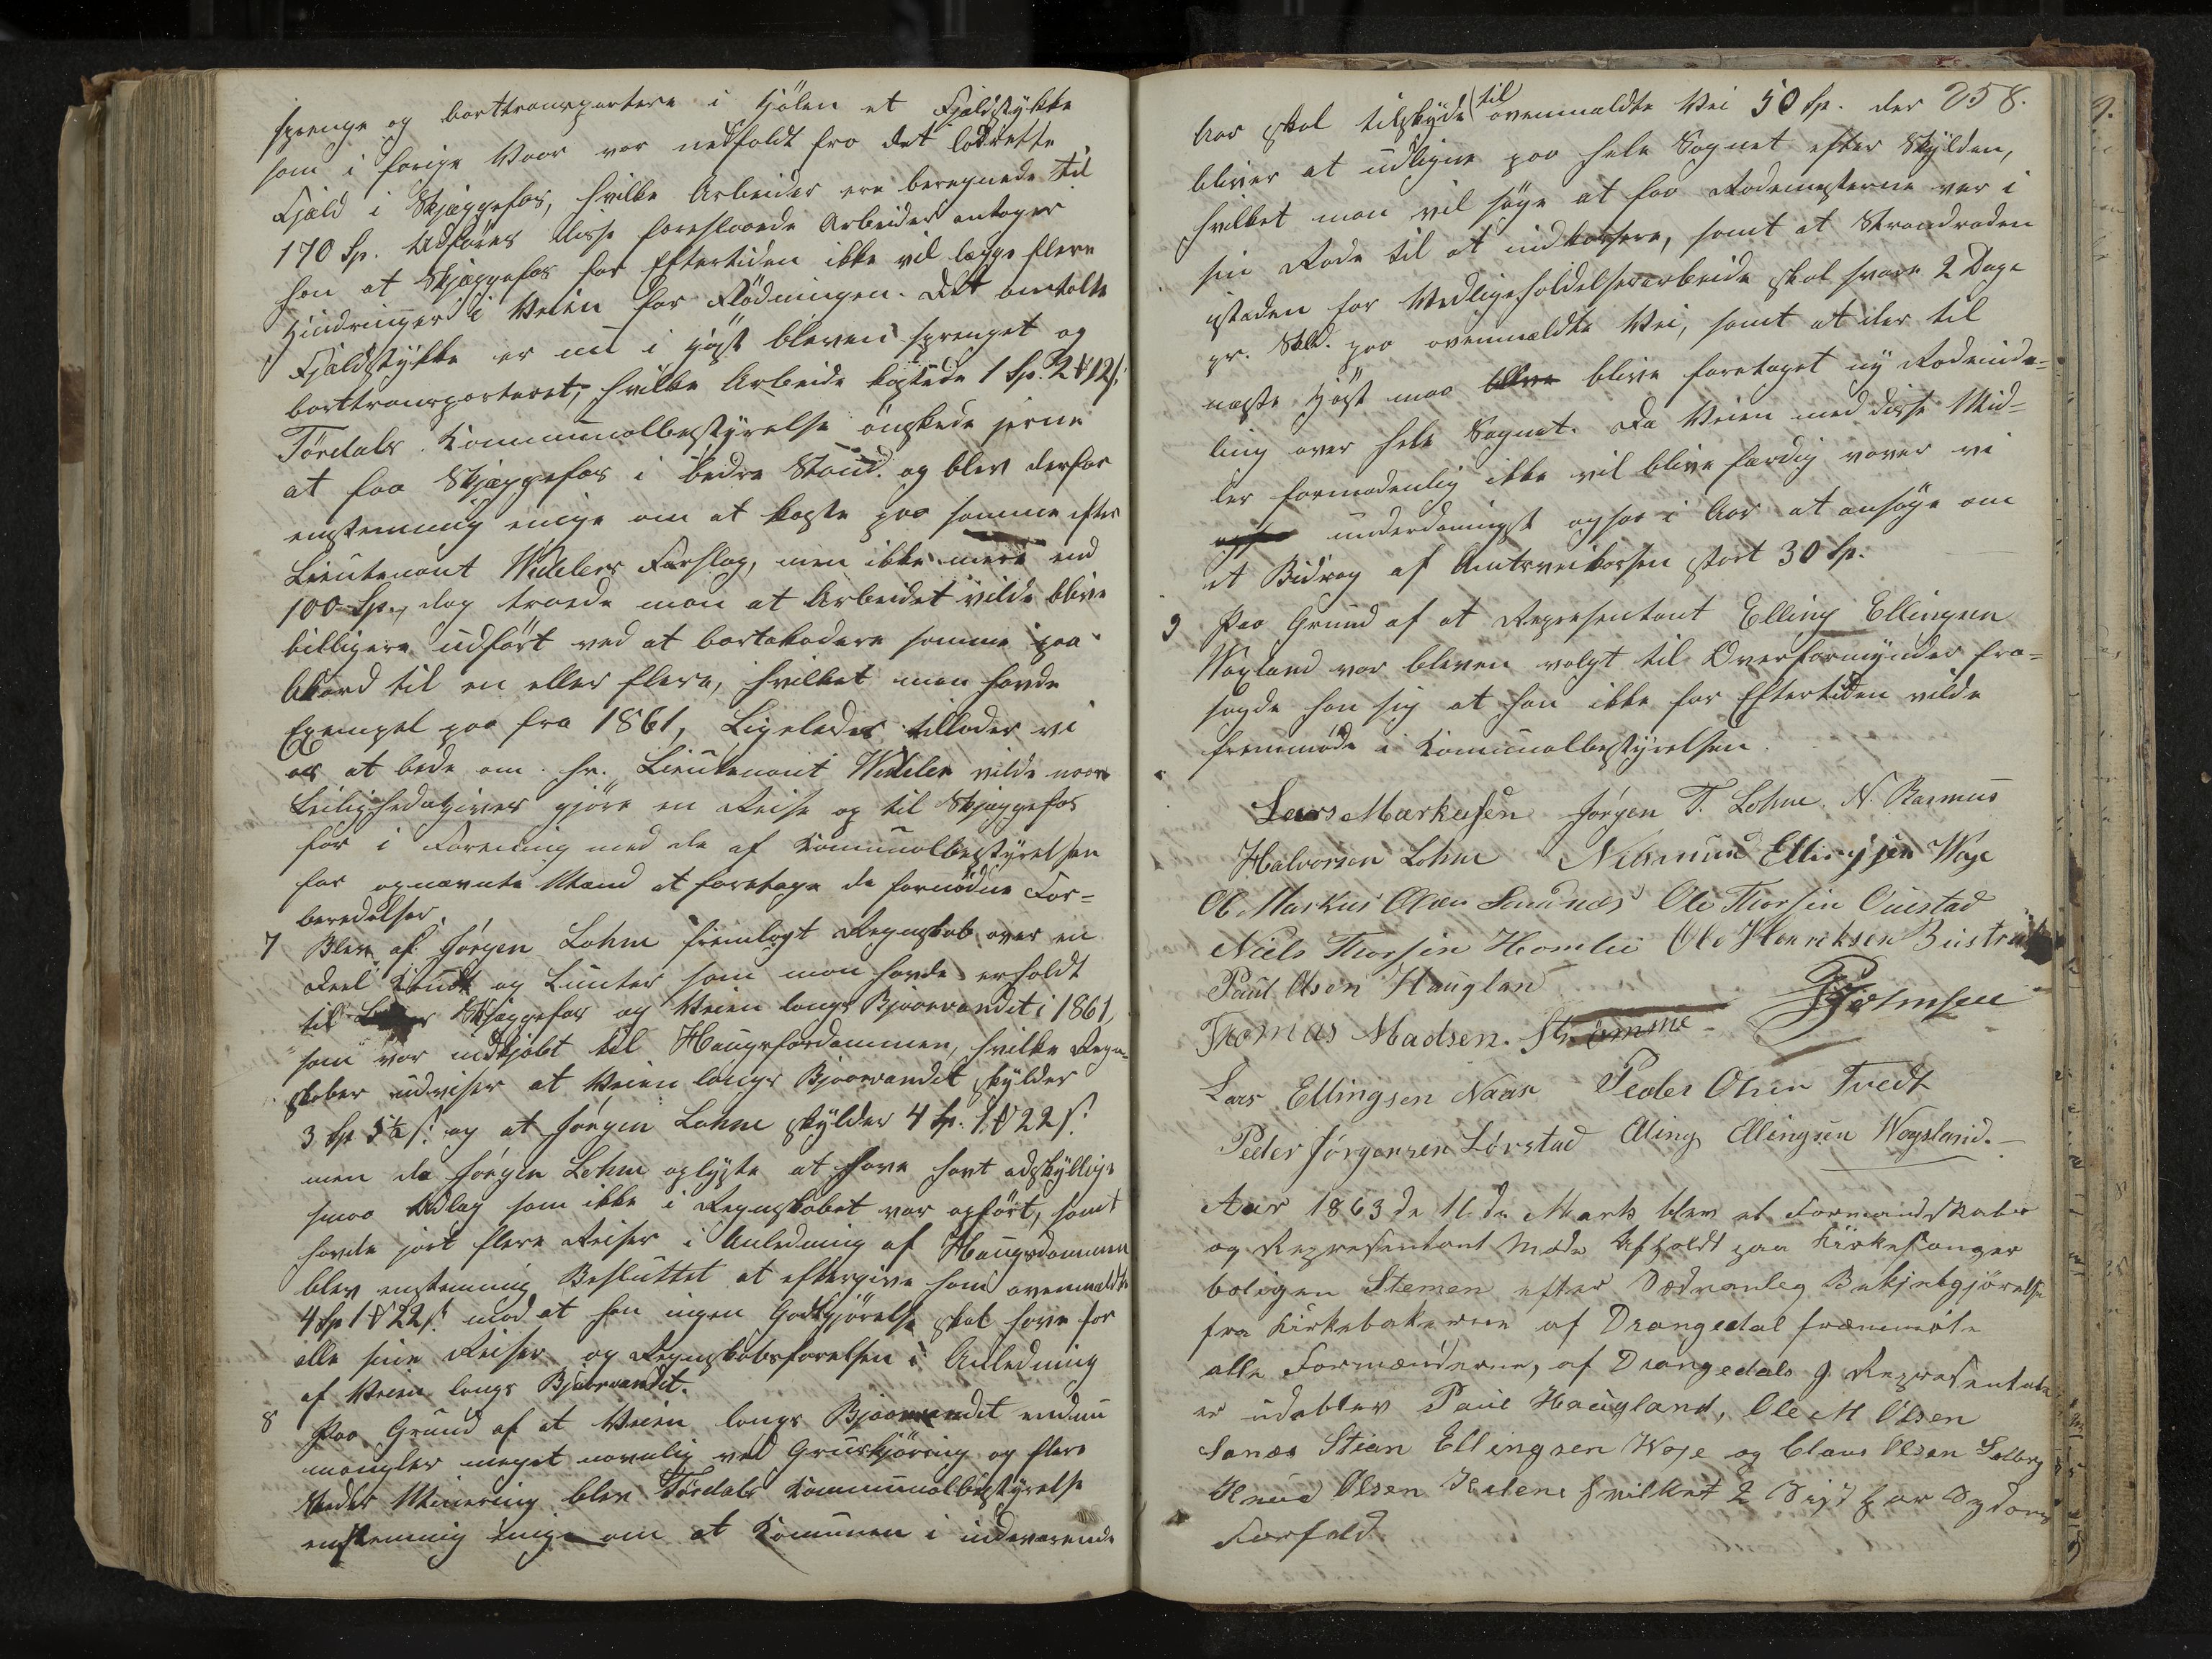 sprenge og borttransportere i Hjølen et Fjeldstykke
som i forige Vaar var nedfaldt fra det lodrette
Fjeld i Skjæggefos, hvilke Arbeider ere beregnede til
170 Sp. Udføres disse foreslaaede Arbeider antager
han at Skjæggefos for Eftertiden ikke vil lægge flere
Hindringer i Veien for Flødningen. Det omtalte
Fjeldstykke er nu i Høst bleven sprenget og
borttransporteret, hvilke Arbeide kostede 1 Sp. 2 # 12 s.
Tørdals Kommunalbestyrelse ønskede gjerne
at faa Skjæggefos i bedre Stand og blev derfor
enstemmig enige om at koste paa samme efter
Lieutenant Widelers Forslag, men ikke mere end
100 Sp., dog troede man at Arbeidet vilde blive
billigere udført ved at bortakodere samme paa
Akord til en eller flere, hvilket man havde
Exempel paa fra 1861, Ligeledes tillader vi
os at bede om hr. Lieutenant Wideler vilde naar
Leilighed gives gjøre en Reise op til Skjæggefos
for i Forening med de af Kommunalbestyrelsen
før opnævnte Mænd at foretage de fornødne For=
beredelser.
7 Blev af Jørgen Lohne fremlagt Regnskab over en
Deel Krudt og Lunter som man havde erholdt
til Skjæggefos og Veien langs Bjaarvandet i 1861,
som var indkjøbt til Haugsfosdammen, hvilke Regn=
skaber udviser at Veien langs Bjaarvandet skylder
3 Sp 5½ s. og at Jørgen Lohne skylder 4 Sp. 1 # 22 s.
men da Jørgen Lohne oplyste at have havt adskyllige
smaa Udlæg som ikke i Regnskabet var opført, samt
havde gjort flere Reiser i Anledning af Haugsdammen
blev enstemmig Besluttet at eftergive ham ovenmeldte
4 Sp 1 # 22 s. mod at han ingen Godtgjørelse skal have for
alle sine Reiser og Regnskabsførelsen i Anledning
af Veien langs Bjaarvandet.
8 Paa Grund af at Veien langs Bjaarvandet endnu
mangler meget navnlig ved Gruskjøring og flere
Steder Minering blev Tørdals Kommunalbestyrelse
enstemmig enige om at Komunen i indeværende
258.
Aar skal tilskyde til ovenmeldte Vei 50 Sp. der
bliver at udligne paa hele Sognet efter Skylden,
hvilket man vil søge at faa Rodemesterne ver i
sin Rode til at indkassere, samt at Strandroden
isteden for Vedligeholdelsesarbeide skal svare 2 Dage
pr. Skld. paa ovenmeldte Vei, samt at der til
næste Høst maa blive foretaget ny Rodeinde=
ling over hele Sognet. Da Veien med disse Mid=
ler formodentlig ikke vil blive færdig vover vi
underdanigst ogsaa i Aar at ansøge om
et Bidrag af Amtsveikassen stort 30 Sp.
9 Paa Grund af at Representant Elling Ellingsen
Vøgland var bleven valgt til Overformynder fra=
sagde han sig at han ikke for Eftertiden vilde
fremmøde i Komunalbestyrelsen.
Lars Markusen Jørgen T. Lohne N. Rasmus
Halvorsen Lohne Ellingsen Woje
Ole Markus Olsen Sandnæs Ole Thorsen
Niels Thorsen Homlie Ole Henriksen
Paul Olsen Haugland
Thomas Madsen Strømme
Lars Ellingsen Naas Peder Olsen Tvedt
Peder Jørgensen Lørstad Elling Ellingsen Wogsland.
Aar 1863 de 16de Marts blev et Formandskabs
og Representant Møde Afholdt paa Kirkesanger
boligen Stemen efter Sædvanleg Bekjentgjørelse
fra Kirkebakkerne af Drangedal fræmmøte
alle Formænderne, af Drangedals 9 Representater
er udeblev Paul Haugland, Ole M Olsen
Sanæs Stian Ellingsen Woje og Claus Olsen Solberg
Knud Olsen hvilket 2 Sist har Sydoms
Forfald